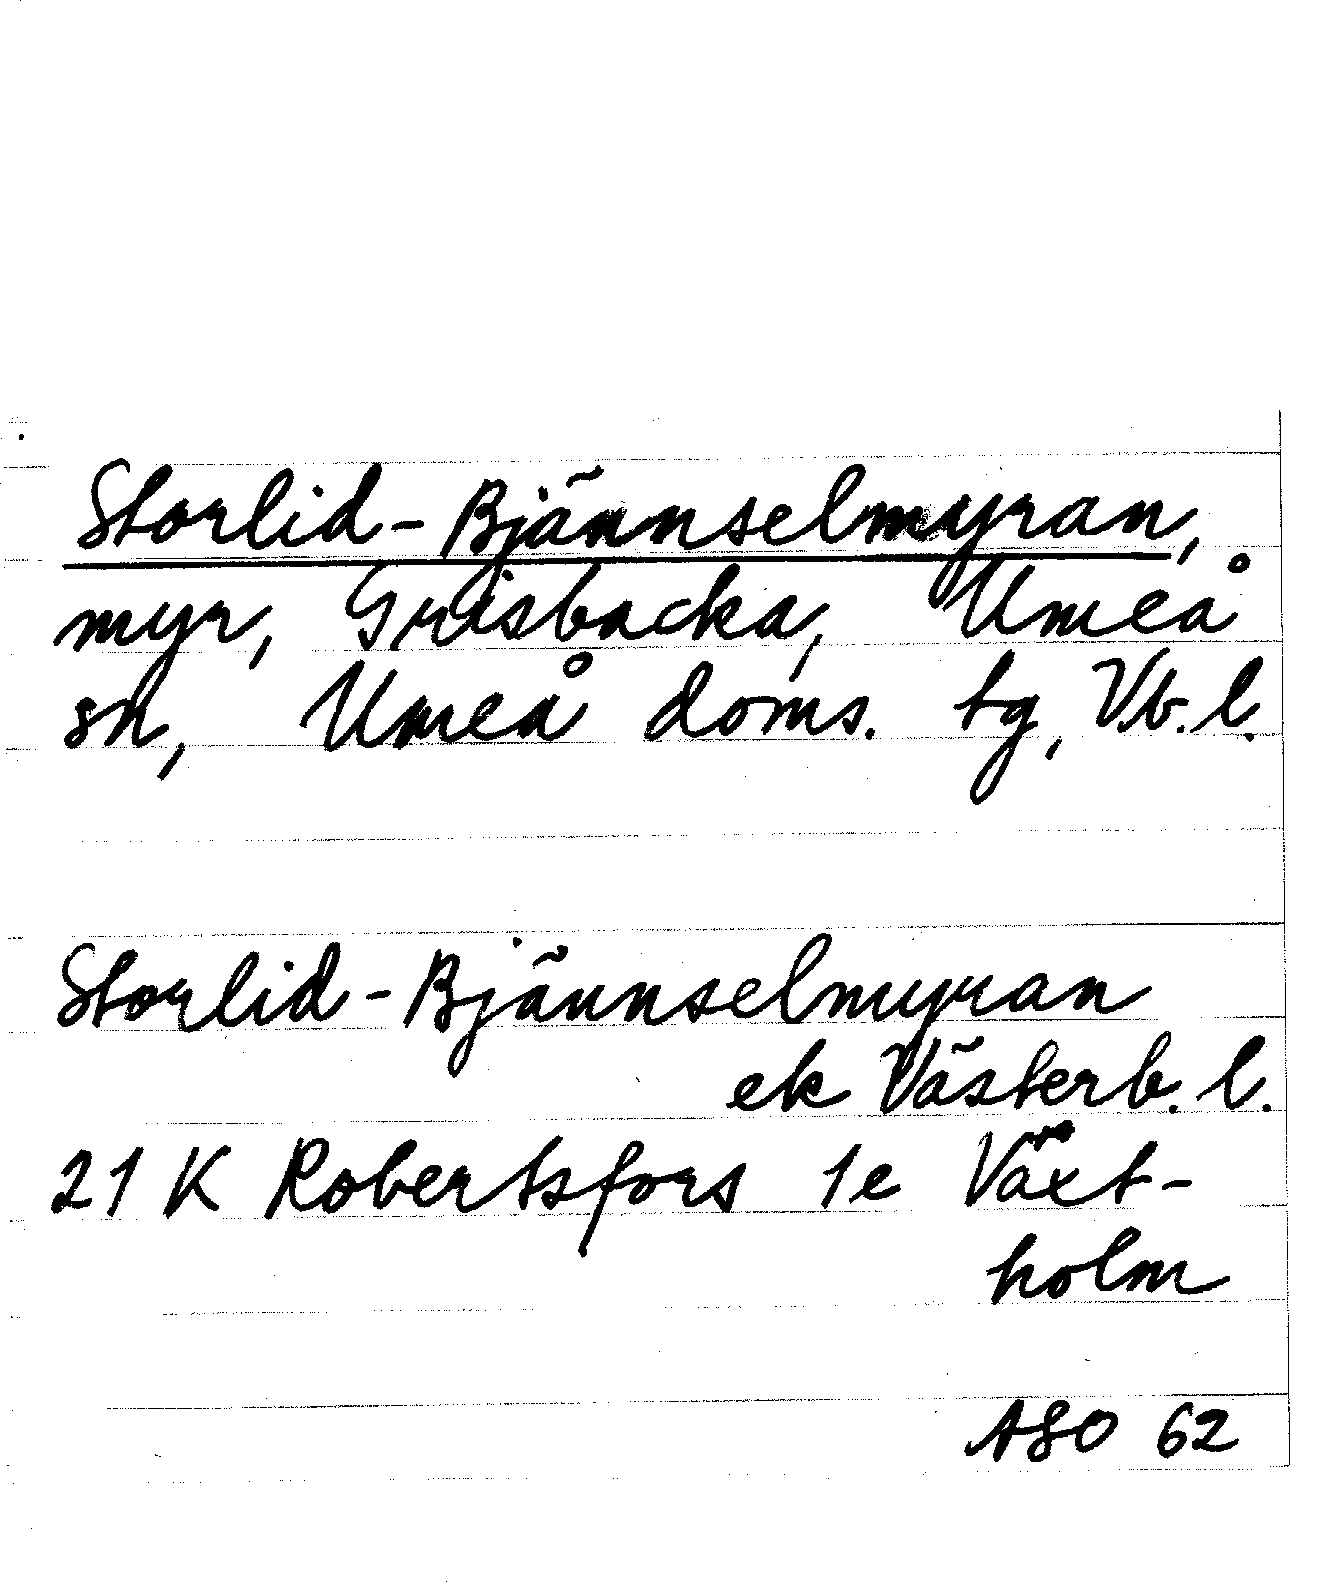 Storlid-Bjännselmyran,
myr, Grisbacka, Umeå
sn, Umeå doms. tg, Vb.l.
Storlid-Bjännselmyran
ek Västerb. l.
21 K Robertsfors 1e Växt-
holm
ASO 62